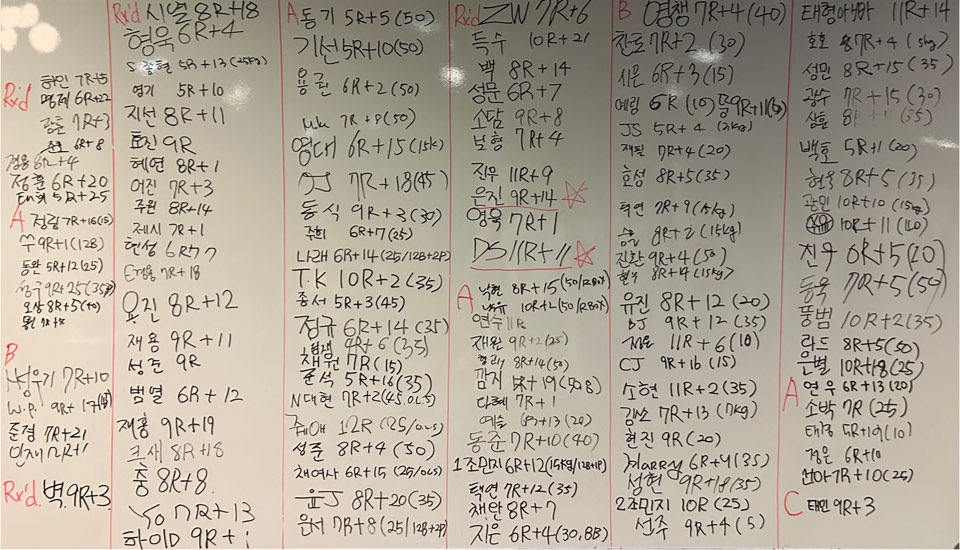 Rx'd
하민 7R+5
명제 6R+22
7R+3
6R+8
경용 8R+4
정훈 6R+20
태혁 5R+25
A 정림 7R+16(15)
쑤 9R+1(12B)
동완 5R+12(25)
성수 9R+25(35)
8R+5
B
7R+10
W.P. 9R+17
준경 7R+21
인재 7R+1
Rx'd. 벽. 9R+3
Rx'd 시열 8R+18
형욱 6R+4
S 종현 5R+13(25kg)
영기 5R+10
지선 8R+11
효진 9R
혜연 8R+1
어진 7R+3
주원 8R+14
제시 7R+1
현성 6R+7
7R+18
요진 8R+12
재용 9R+11
성준 9R
범열 6R+12
재홍 9R+19
크새 8R+18
충 8R+8
Yo 7R+13
하이D 9R+1
A 동기 5R+5(50)
기선 5R+10(50)
용권 6R+2(50)
7R+8(50)
영대 6R+15(15kg)
OJ 7R+18(45)
동식 9R+3(30)
주희 6R+7(25)
나래 6R+14(25/12B+2P)
T.K 10R+2(35)
종서 5R+3(45)
정규 6R+14(35)
4R+6(35)
채원 7R(15)
준석 5R+16(35)
N대현 7R+2(45.ous)
12R(25/ous)
성준 8R+4(50)
채여사 6R+15(25/ous)
윤J 8R+20(35)
윤서 7R+8(25/12B+2P)
Rx'd ZW 7R+6
득수 10R+21
백 8R+14
성문 6R+7
소담 9R+8
보형 7R+4
진우 11R+9
은진 9R+14
영욱 7R+1
DS 11R+11
A 낙현 8R+15(50/12BOX)
10R+2(50/12BOX)
연수 11R
재원 9R+2(25)
8R+14(50)
깜지 5R+19(50.B)
다혜 7R+1
예슬 8R+13(20)
동준 7R+10(40)
1조민지 6R+12(15kg/12B+1P)
택연 7R+12(35)
채완 8R+7
지은 6R+4(30,8B)
B 명쟁 7R+4(40)
찬호 7R+2(30)
시온 6R+3(15)
예림 6R(10)
JS 5R+4(21kg)
재필 7R+4(20)
효성 8R+5(35)
택연 7R+9(15kg)
승훈 8R+2(15kg)
진환 9R+4(50)
현욱 8R+14(15kg)
유진 8R+12(20)
DJ 9R+12(35)
11R+6(10)
CJ 9R+16(15)
소현 11R+2(35)
김소 7R+13(7kg)
현진 9R(20)
6R+4(35)
성현 9R+18(35)
2조민지 10R(25)
선주 9R+4(5)
11R+14
호호 7R+4(5kg)
성민 8R+15(35)
광수 7R+15(30)
상훈 8R+11(35)
백호 5R+1(20)
현욱 8R+5(35)
관민 10R+10(15kg)
10R+11(40)
진우 6R+5(40)
동욱 7R+5(50)
풍범 10R+2(35)
라드 8R+5(50)
은별 10R+18(25)
A 연우 6R+13(20)
소박 7R(25)
태경 5R+19(10)
경은 6R+10
7R+10(25)
C 태민 9R+3